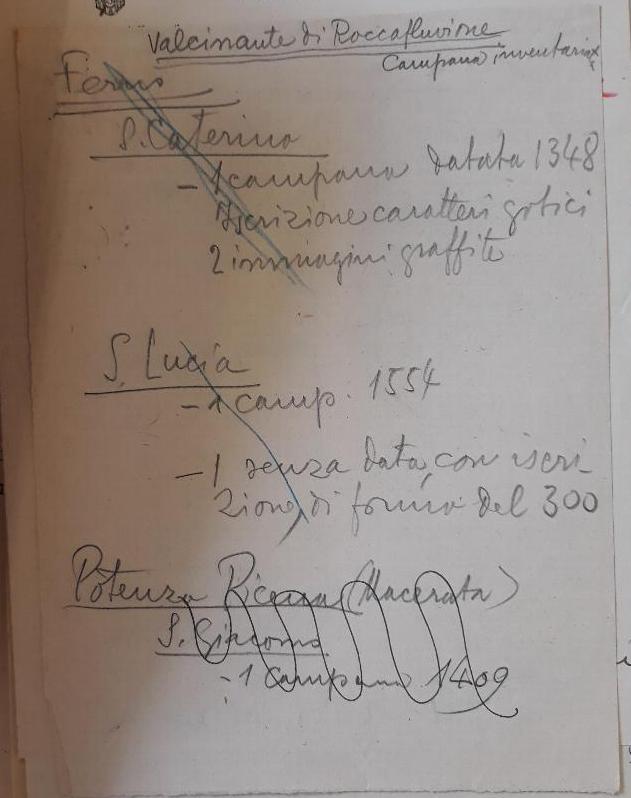 Valcinante di Roccafluvione
Campana inventariata
Fermo
S. Caterina
- 1 campana datata 1348
Iscrizione caratteri gotici
2 immagini graffite
S. Lucia
- 1 camp. 1554
- 1 senza data, con iscri
zione, di forma del 300
Potenza Picena (Macerata)
S. Giacomo
- 1 campana 1409